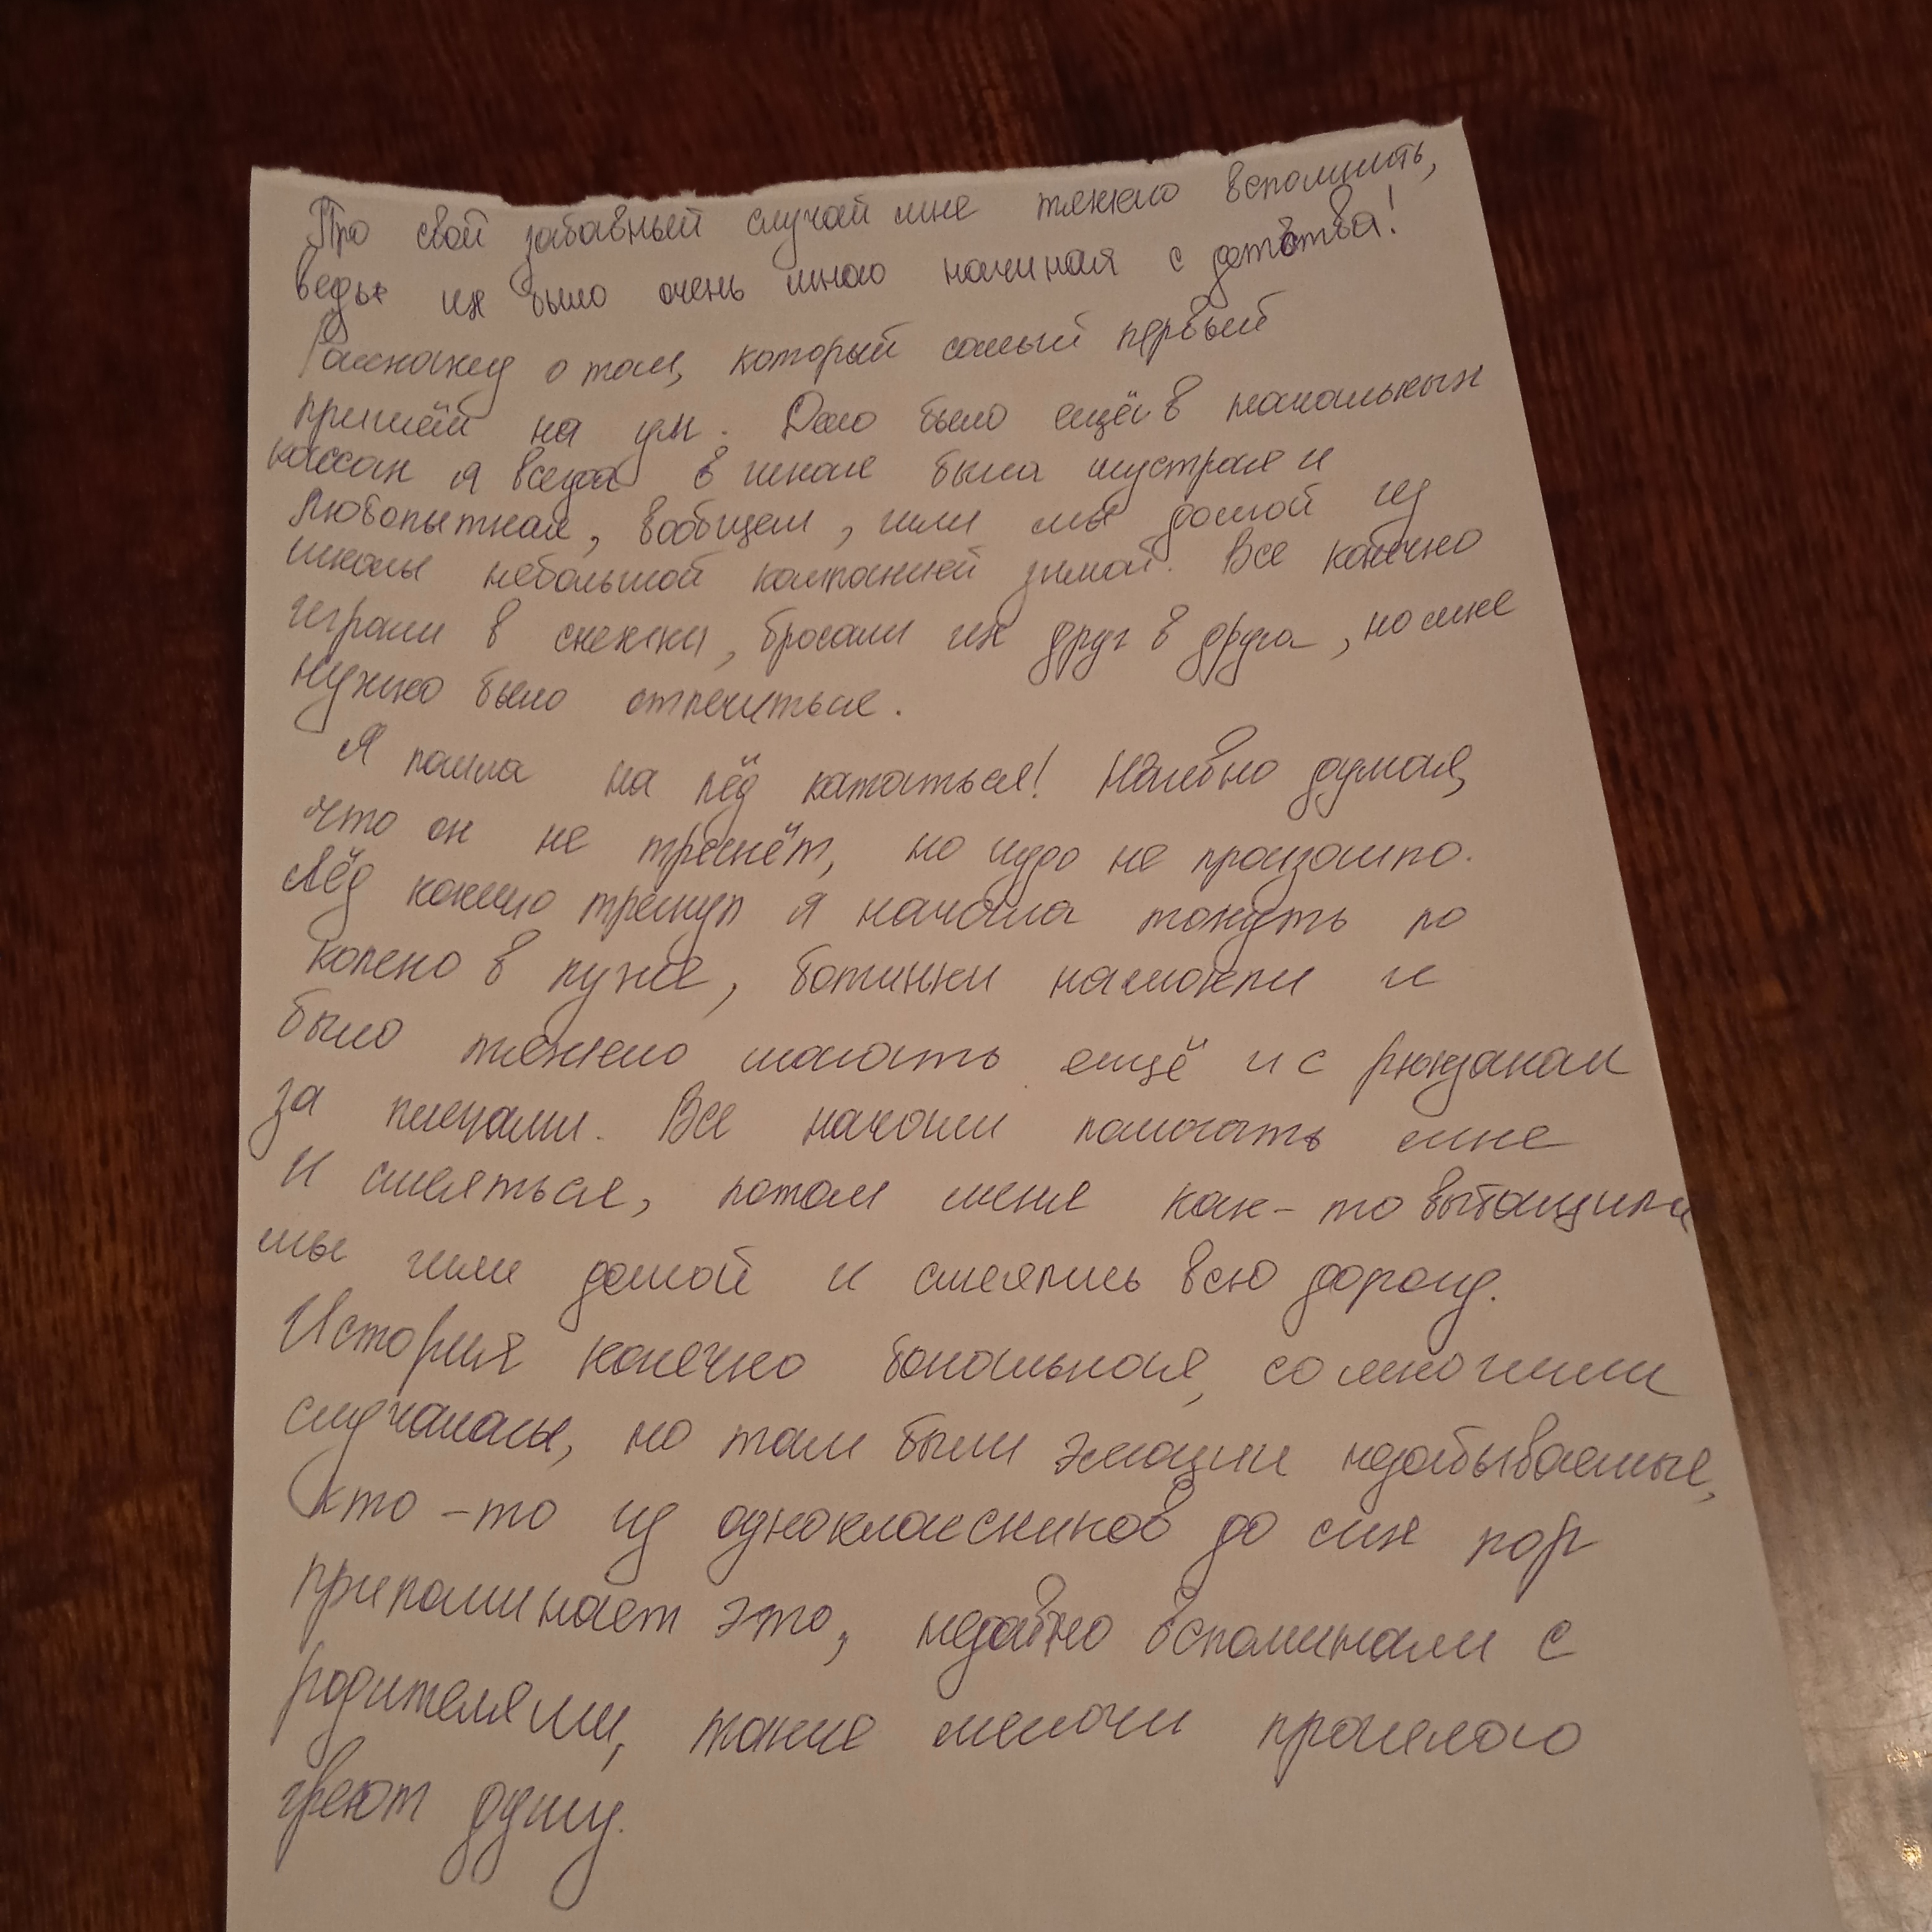 Про свой забавный случай мне тяжело вспомнить,
ведь их было очень много начиная с детства!
Расскажу о том, который самый первый
пришёл на ум. Дело было ещё в начальных
классах я всегда в школе была шустрая и
любопытная, вообщем, шли мы домой из
школы небольшой компанией зимой. Все конечно
играли в снежки, бросали их друг в друга, но мне
нужно было отличиться.
Я пошла на лёд кататься! Наивно думая,
что он не треснет, но чудо не произошло.
Лёд конечно треснул я начала тонуть по
колено в луже, ботинки намокли и
было тяжело шагать ещё и с рюкзаком
за плечами. Все начали помогать мне
и смеяться, потом меня как-то вытащили
мы шли домой и смеялись всю дорогу.
История конечно банальная, со многими
случалась, но там были эмоции незабываемые,
кто-то из одноклассников до сих пор
припоминает это, недавно вспоминали с
родителями, такие мелочи прошлого
греют душу.